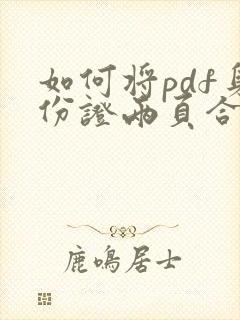 如何将pdf身
份證兩頁合
鹿鳴居士